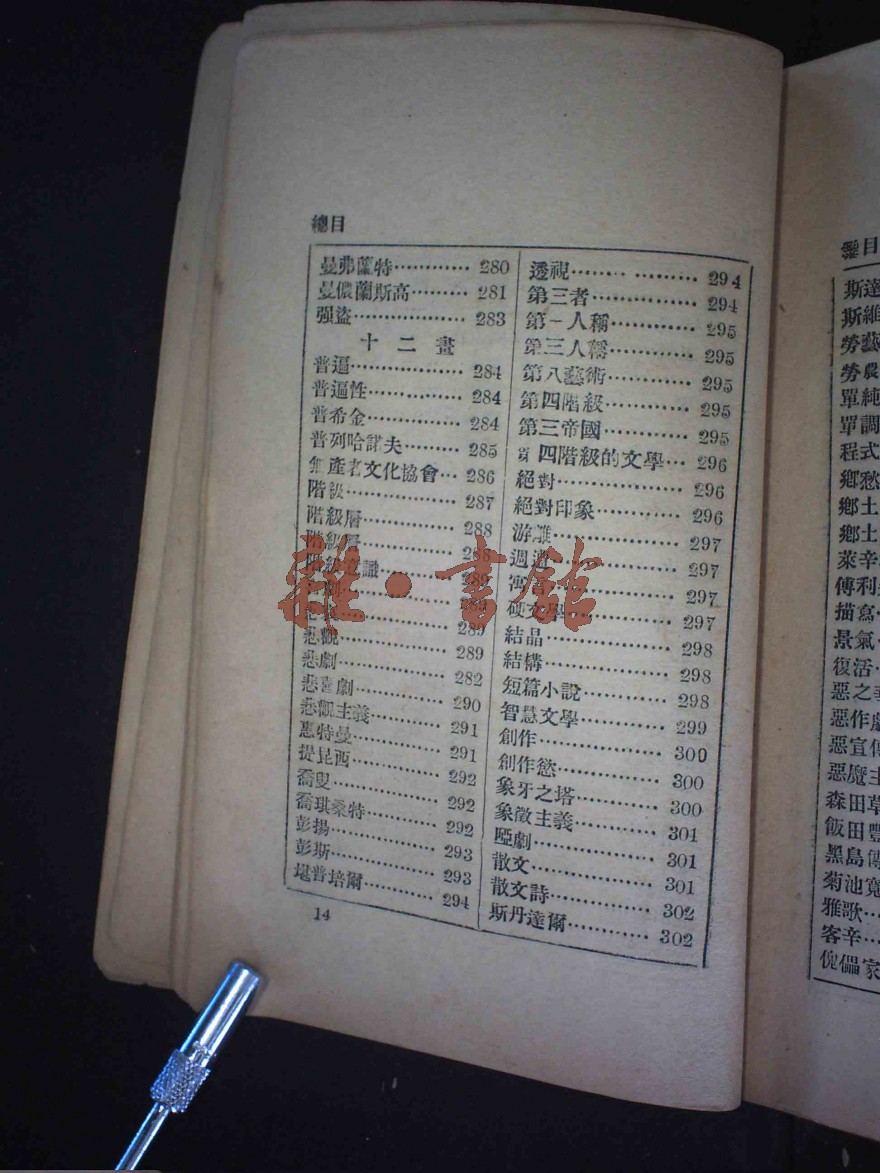 總目
曼弗蘭特………… 280
曼儂蘭斯高……… 281
强盜……………… 283
十二畫
普遍……………… 284
普遍性…………… 284
普希金…………… 284
普列哈諾夫……… 285
無產者文化協會… 286
階級……………… 287
階級層…………… 288
階級 288
階級意識 289
劇 289
289
悲觀……………… 289
悲劇……………… 282
悲喜劇…………… 290
悲觀主義………… 291
惠特曼…………… 291
提昆西…………… 292
喬叟……………… 292
喬琪桑特………… 292
彭揚……………… 293
彭斯……………… 293
堪普培爾………… 294
14
透視……………… 294
第三者…………… 294
第一人稱………… 295
第三人稱………… 295
第八藝術………… 295
第四階級………… 295
第三帝國………… 295
第四階級的文學… 296
絕對……………… 296
絕對印象………… 296
游離……………… 297
週 297
寓 297
硬文學…………… 297
結晶……………… 298
結構……………… 298
短篇小說………… 298
智慧文學………… 299
創作……………… 300
創作慾…………… 300
象牙之塔………… 300
象徵主義………… 301
啞劇……………… 301
散文……………… 301
散文詩…………… 302
斯丹達爾………… 302
雜·書館
目
斯達
斯維
勞藝
勞農
單純
單調
程式
鄉愁
鄉土
鄉土
萊辛
傅利
描寫
景氣
復活
惡之
惡作劇
惡宣傳
惡魔主
森田草
飯田豐
黑島傳
菊池寬
雅歌
客辛
傀儡家